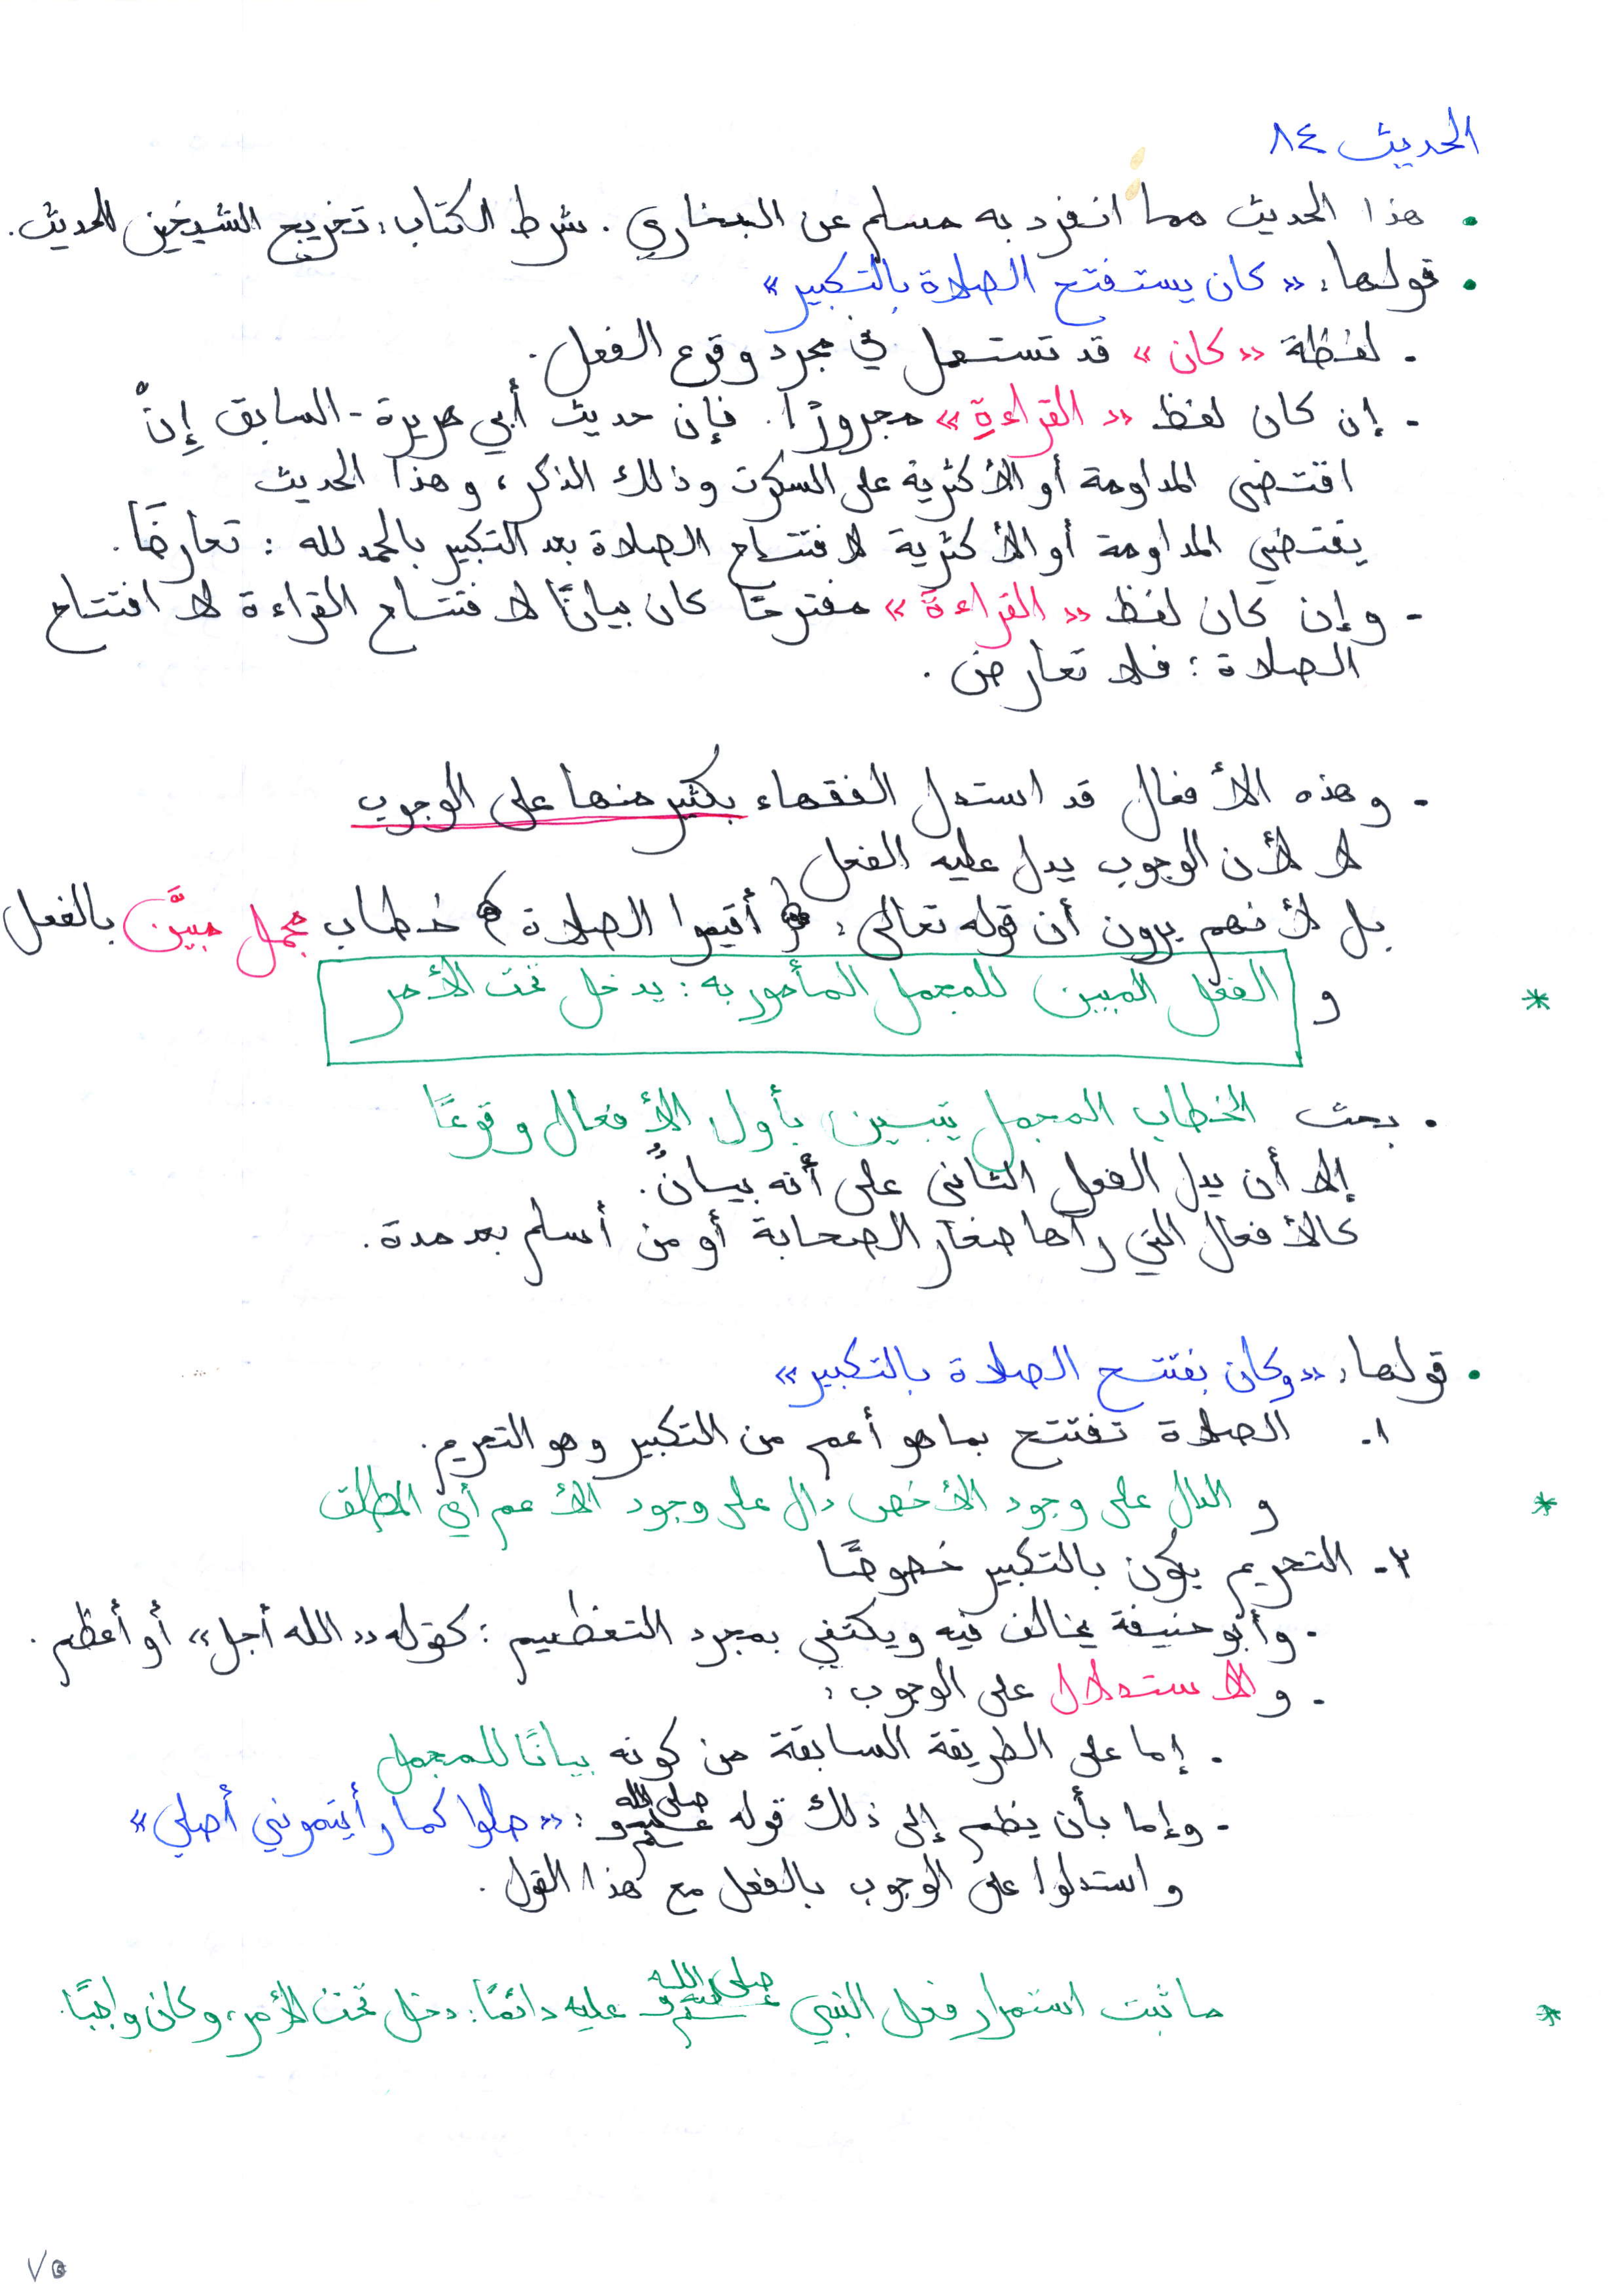 الحديث ٨٤
• هذا الحديث مما انفرد به مسلم عن البخاري. شرط الكتاب: تخريج الشيخين للحديث.
• قولها: «كان يستفتح الصلاة بالتكبير»
- لفظة «كان» قد تستعمل في مجرد وقوع الفعل.
- إن كان لفظ «القراءةِ» مجرورًا. فإن حديث أبي هريرة - السابق إنْ
اقتضى المداومة أو الأكثرية على السكوت وذلك الذكر، وهذا الحديث
يقتضي المداومة أو الأكثرية لافتتاح الصلاة بعد التكبير بالحمد لله: تعارضَا.
- وإن كان لفظ «القراءةَ» مفتوحًا كان بيانًا لافتتاح القراءة لا افتتاح
الصلاة: فلا تعارض.
- وهذه الأفعال قد استدل الفقهاء بكثير منها على الوجوب
لا لأن الوجوب يدل عليه الفعل
بل لأنهم يرون أن قوله تعالى: ﴿أقيموا الصلاة﴾ خطاب مجمل مبيَّن بالفعل
* و الفعل المبين للمجمل المأمور به: يدخل تحت الأمر
• بحث الخطاب المجمل يتبين بأول الأفعال وقوعًا
إلا أن يدل الفعل الثاني على أنه بيانٌ.
كالأفعال التي رآها صغار الصحابة أو من أسلم بعد مدة.
• قولها: «وكان يفتتح الصلاة بالتكبير»
١. الصلاة تفتتح بما هو أعم من التكبير وهو التحريم.
* و الدال على وجود الأخص دال على وجود الأعم أي المطلق
٢- التحريم يكون بالتكبير خصوصًا
- وأبو حنيفة يخالف فيه ويكتفي بمجرد التعظيم: كقوله «الله أجل» أو أعظم.
- والاستدلال على الوجوب:
- إما على الطريقة السابقة من كونه بيانًا للمجمل
- وإما بأن يضم إلى ذلك قوله صلى الله عليه وسلم: «صلوا كما رأيتموني أصلي»
واستدلوا على الوجوب بالفعل مع هذا القول.
* ما ثبت استمرار فعل النبي صلى الله عليه وسلم عليه دائمًا: دخل تحت الأمر، وكان واجبًا.
٧٥